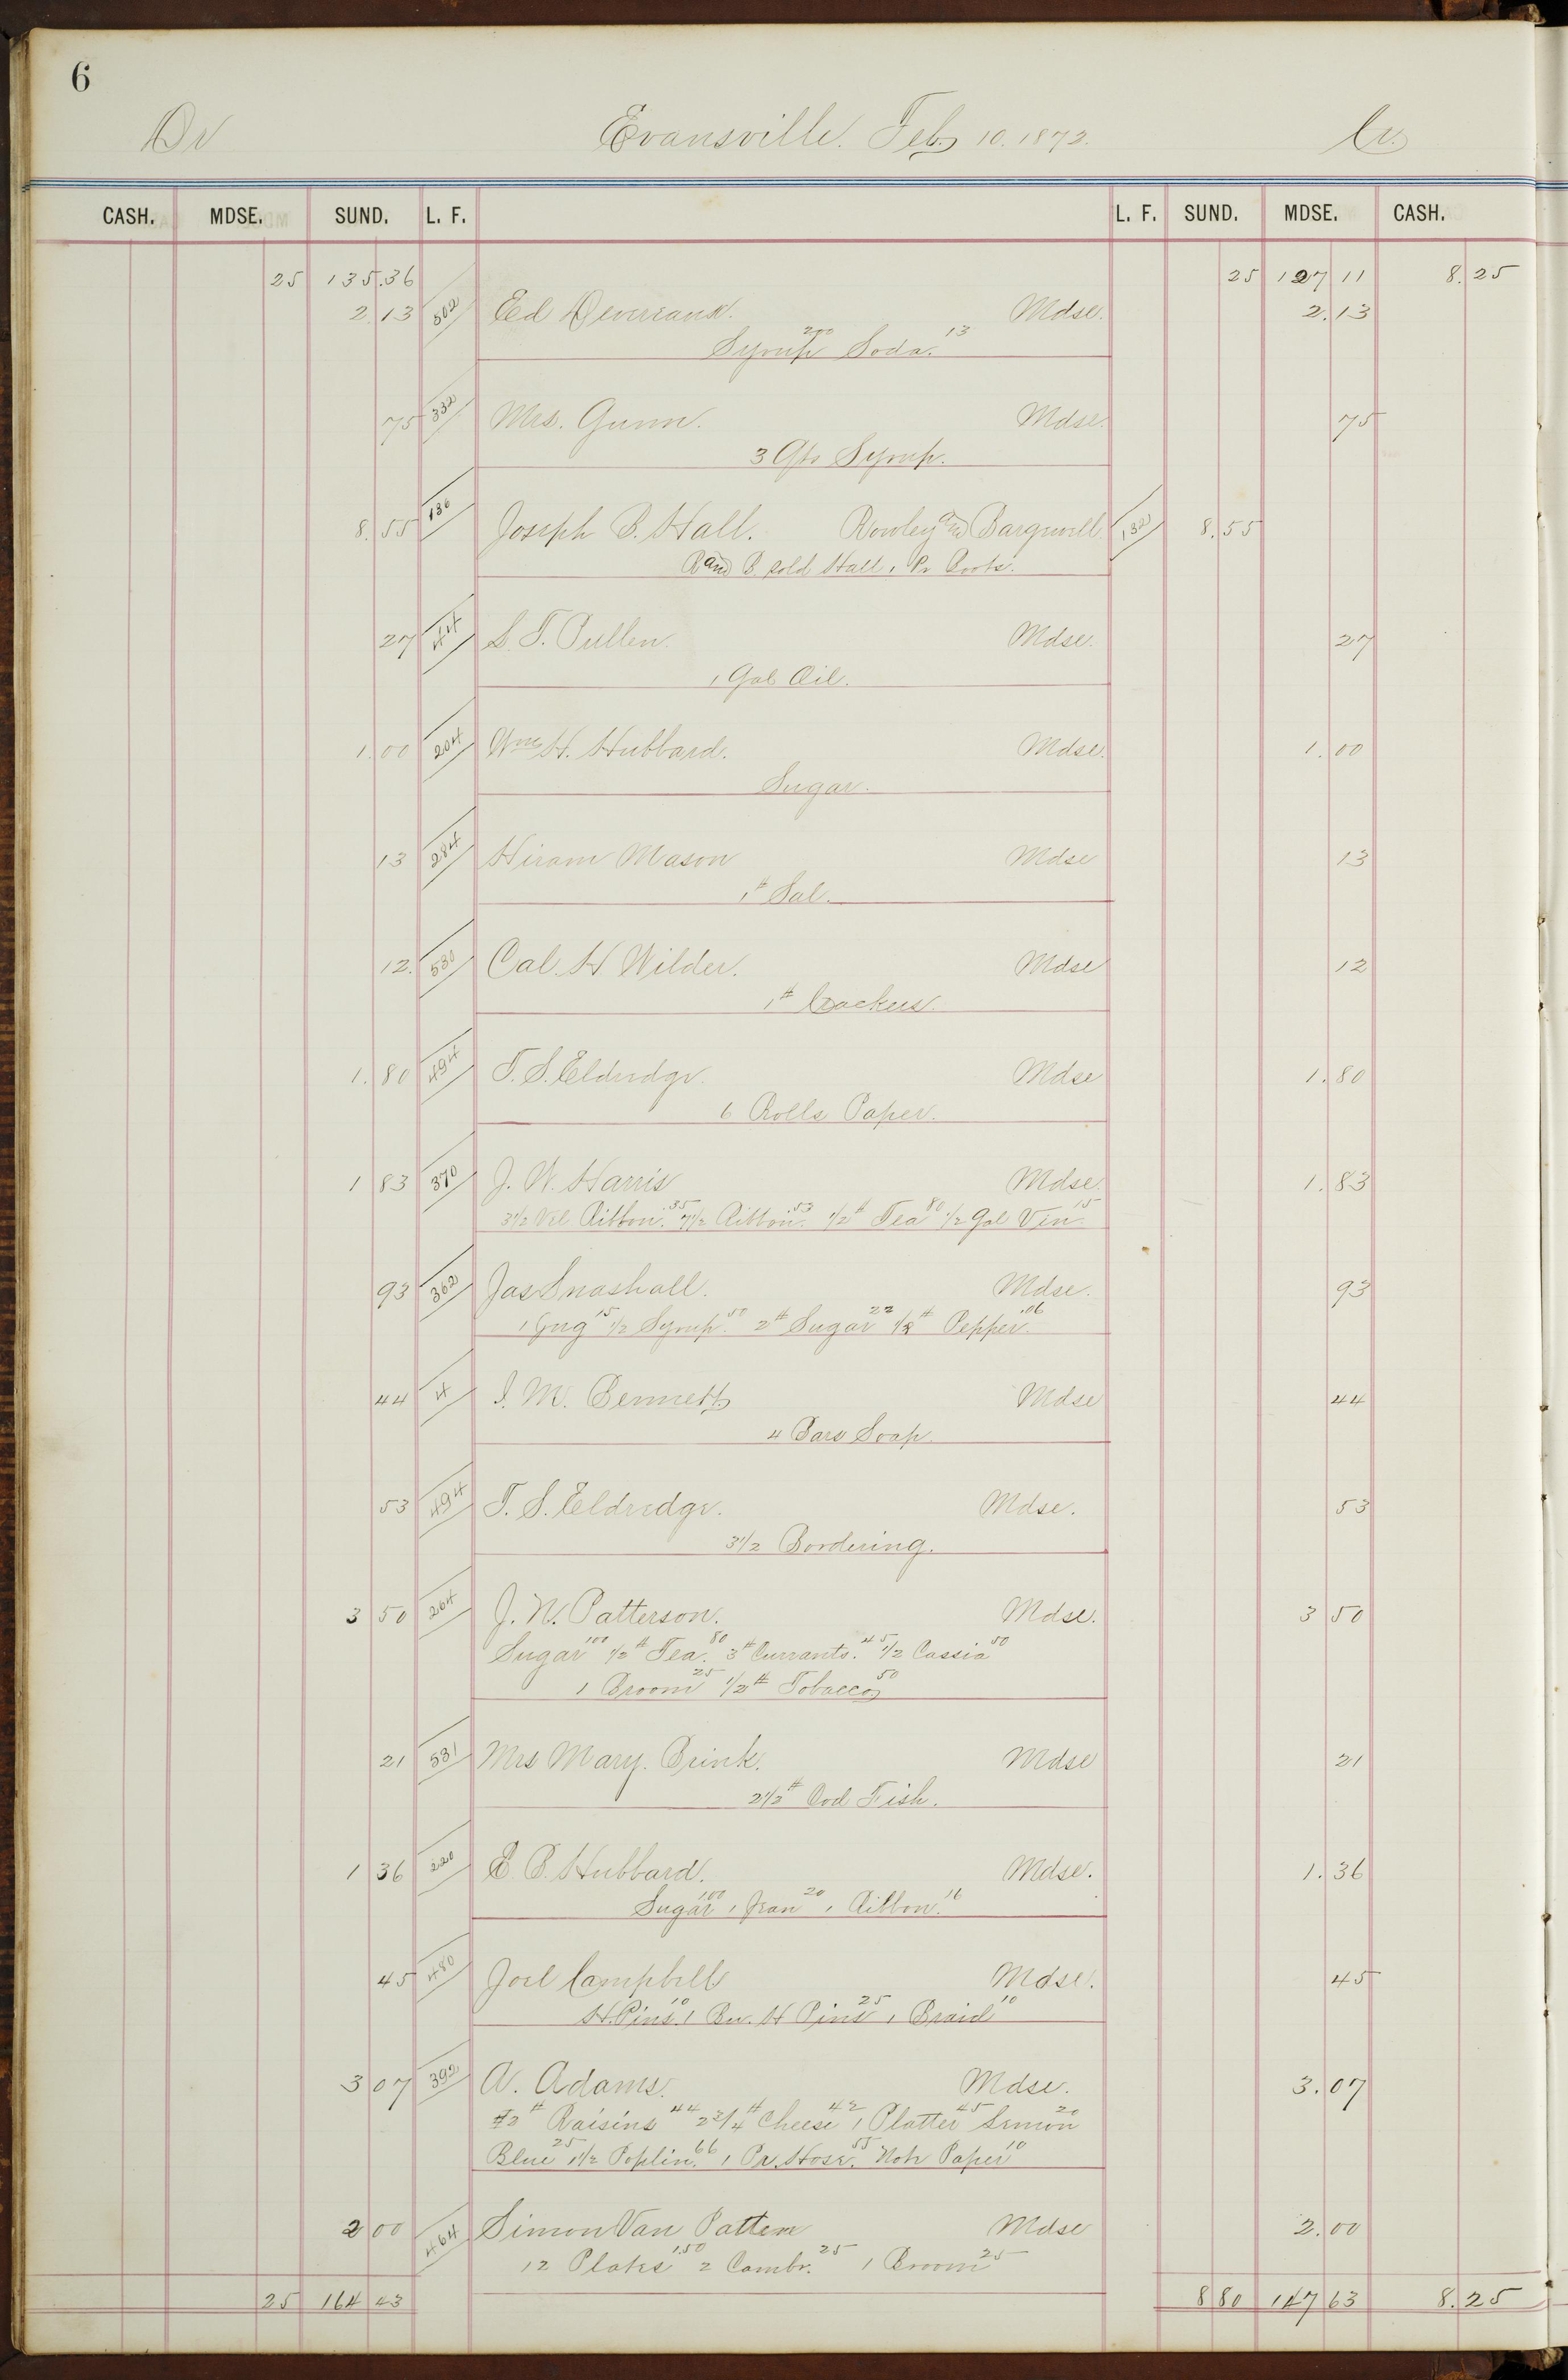 6
Dr Evansville. Feb 10. 1872. Cr.
CASH. MDSE. SUND. L. F. L. F. SUND. MDSE. CASH.
25 135.36 25 127 11 8.25
2.13 502 Ed Devereaux. Mdse. 2.13
Syrup 200 Soda. 13
75 332 Mrs. Gunn. Mdse. 75
3 Qts Syrup.
8.55 136 Joseph B. Hall. Rowley and Bargewell 132 8.55
R and B. sold Hall 1 Pr Boots.
27 44 L. T. Pullen. Mdse. 27
1 Gal Oil.
1.00 204 Wm H. Hubbard. Mdse. 1.00
Sugar.
13 284 Hiram Mason Mdse 13
1# Sal.
12. 530 Cal. H Wilder. Mdse 12
1# Crackers.
1.80 494 T. S. Eldredge. Mdse 1.80
6 Rolls Paper.
1 83 370 J. W. Harris Mdse. 1.83
3 1/2 Vel Ribbon. 35 7 1/2 Ribbon. 53 1/2# Tea 80 1/2 Gal Vin. 15
93 362 Jas Snashall. Mdse. 93
1 Gug 15 1/2 Syrup. 50 2# Sugar 22 1/8# Pepper. .06
44 4 I. M. Bennett Mdse 44
4 Bars Soap.
53 494 T. S. Eldredge. Mdse. 53
3 1/2 Bordering.
3 50 264 J. N. Patterson. Mdse. 3 50
Sugar 100 1/2# Tea. 80 3# Currants. 45 1/2 Cassia 50
1 Broom 25 1/2# Tobacco 50
21 531 Mrs Mary. Brink. Mdse 21
2 1/2# Cod Fish.
1 36 220 E. B. Hubbard. Mdse. 1.36
Sugar 1.00 1 Jean 20 1 Ribbon. 16
45 480 Joel Campbell Mdse. 45
H. Pins. 10 1 Bu. H Pins 25 1 Braid 10
3 07 392 A. Adams. Mdse. 3.07
2# Raisins 44 2 3/4# Cheese 42 1 Platter 45 Lemon 20
Blue 25 1 1/2 Poplin. 66 1 Pr. Hose. 55 Note Paper 10
2 00 464 Simon Van Patten Mdse 2.00
12 Plates 1.50 2 Cambr. 25 1 Broom 25
25 164 43 8 80 147 63 8.25